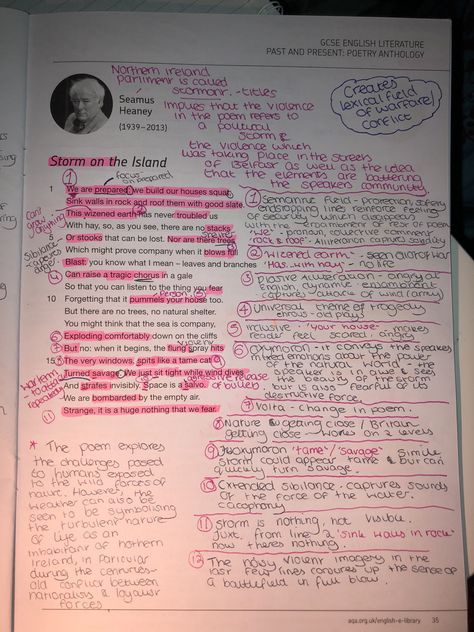 GCSE ENGLISH LITERATURE
PAST AND PRESENT: POETRY ANTHOLOGY
Northern Ireland
parliment is called
stormont. - titles
Seamus
Heaney
(1939–2013)
Implies that the violence
in the poem refers to
a political
storm &
the violence which
was taking place in the streets
of Belfast as well as the idea
that the elements are battering
the speakers community.
Creates
lexical field
of warfare/
conflict
Storm on the Island
focus
on prepared
1 We are prepared: we build our houses squat,
Sink walls in rock and roof them with good slate.
This wizened earth has never troubled us
With hay, so, as you see, there are no stacks
5 Or stooks that can be lost. Nor are there trees
Which might prove company when it blows full
Blast: you know what I mean – leaves and branches
Can raise a tragic chorus in a gale
So that you can listen to the thing you fear
10 Forgetting that it pummels your house too.
But there are no trees, no natural shelter.
You might think that the sea is company,
Exploding comfortably down on the cliffs
But no: when it begins, the flung spray hits
15 The very windows, spits like a tame cat
Turned savage. We just sit tight while wind dives
And strafes invisibly. Space is a salvo.
We are bombarded by the empty air.
Strange, it is a huge nothing that we fear.
Can't
grow
anything
Sibilance
release
of bullets
1 Semantic field - protected, safety
enveloping lines reinforce feeling
of security - which disappears
with the enjambment of rest of poem
"we" - pronoun, collective comment
'rock & roof' - Alliteration
2 'wizened earth'
'Has... with hay' - no life
3 Plosive alliteration
captures attack of wind (army)
4 universal theme of tragedy
- old plays
5 Inclusive - 'your house' makes
reader feel scared
6 Oxymoron - it conveys the speakers
mixed emotions about the power
of the natural world. The
speaker is in awe & sees
the beauty of the storm
but is also fearful of its
destructive force.
7 Volta - change in poem.
8 Nature is getting close / Britain
getting close - works on 2 levels
9 Oxymoron 'tame'/'savage' simile
storm could appear tame & but can
quickly turn savage.
10 Extended sibilance - captures sounds
of the force of the water.
cacophony
11 Storm is nothing, not visible.
Juxt. from line 2 'sink walls in rock'
now theres nothing.
12 The noisy violent imagery in the
last few lines conjures up the sense of
a battlefield in full blow.
* The poem explores
the challenges posed
to humans exposed
to the wild forces of
nature. However, the
weather can also be
seen to be symbolising
the turbulent nature
of life as an
inhabitant of northern
Ireland, in particular
during the centuries-
old conflict between
nationalists & loyalist
forces
aqa.org.uk/english-e-library 35